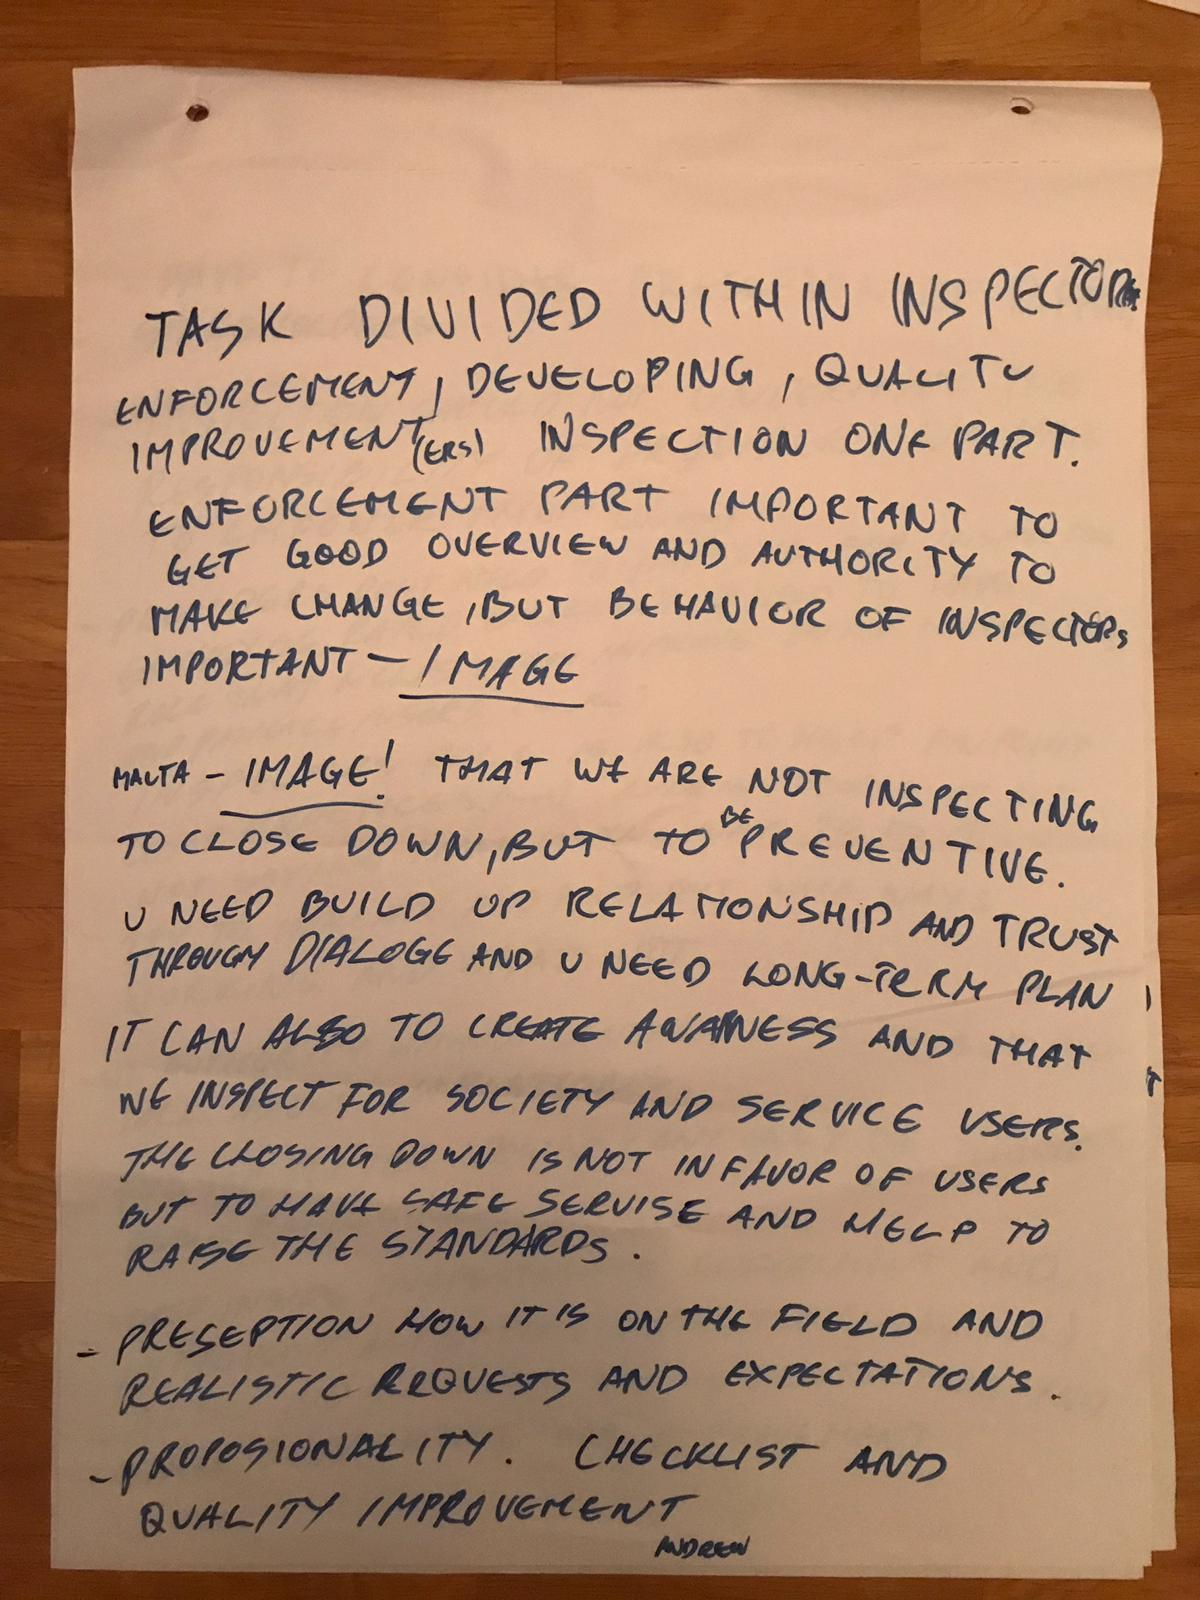 TASK DIVIDED WITHIN INSPECTORS
ENFORCEMENT, DEVELOPING, QUALITY
IMPROVEMENT (ERS) INSPECTION ONE PART.
ENFORCEMENT PART IMPORTANT TO
GET GOOD OVERVIEW AND AUTHORITY TO
MAKE CHANGE, BUT BEHAVIOR OF INSPECTERS
IMPORTANT – IMAGE
MALTA – IMAGE! THAT WE ARE NOT INSPECTING
TO CLOSE DOWN, BUT TO BE PREVENTIVE.
U NEED BUILD UP RELATIONSHIP AND TRUST
THROUGH DIALOGE AND U NEED LONG-TERM PLAN
IT CAN ALSO TO CREATE AWARNESS AND THAT
WE INSPECT FOR SOCIETY AND SERVICE USERS.
THE CLOSING DOWN IS NOT IN FAVOR OF USERS
BUT TO HAVE SAFE SERVISE AND HELP TO
RAISE THE STANDARDS.
- PRESEPTION HOW IT IS ON THE FIELD AND
REALISTIC REQUESTS AND EXPECTATIONS.
- PROPOSIONALITY. CHECKLIST AND
QUALITY IMPROVEMENT
ANDREW